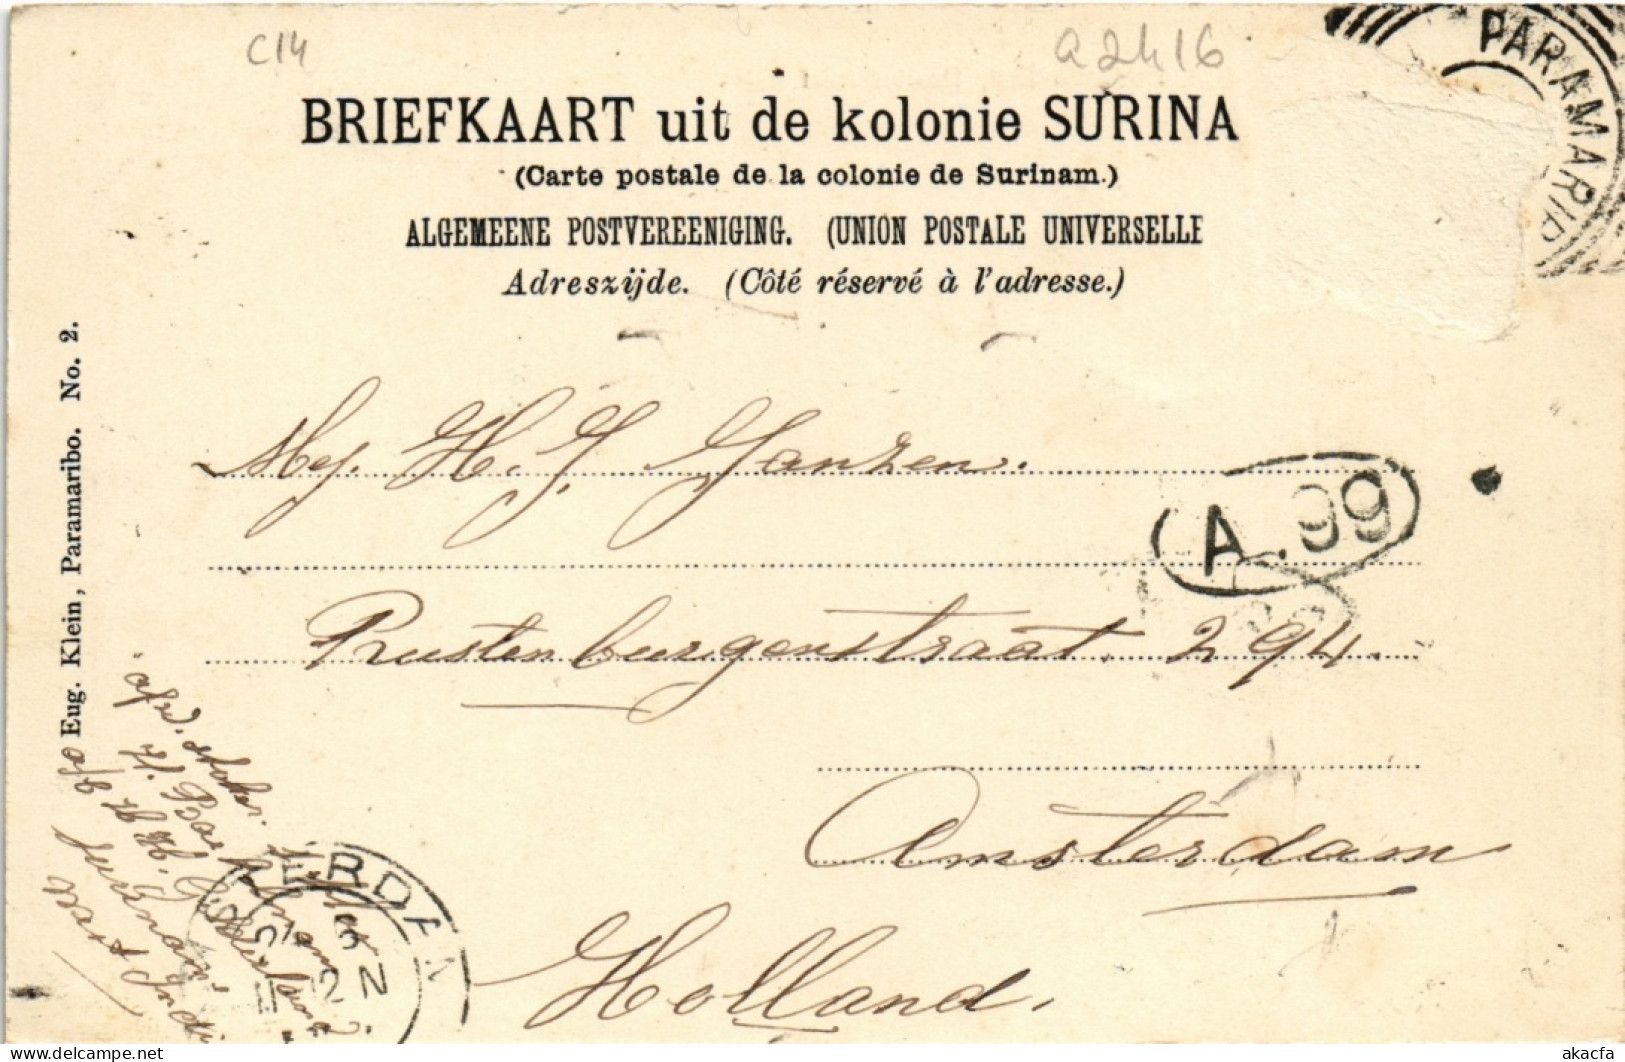 C14
a2416
PARAMARIB
BRIEFKAART uit de kolonie SURINA
(Carte postale de la colonie de Surinam.)
ALGEMEENE POSTVEREENIGING. (UNION POSTALE UNIVERSELLE
Adreszijde. (Côté réservé à l'adresse.)
Eug. Klein, Paramaribo. No. 2.
Mej. H. J. Janzen.
A.99
Rustenburgerstraat. 294.
Amsterdam
Holland.
afzd. stoker.
a/b
Suriname
West Indi
TERDAM
12 N
akacfa